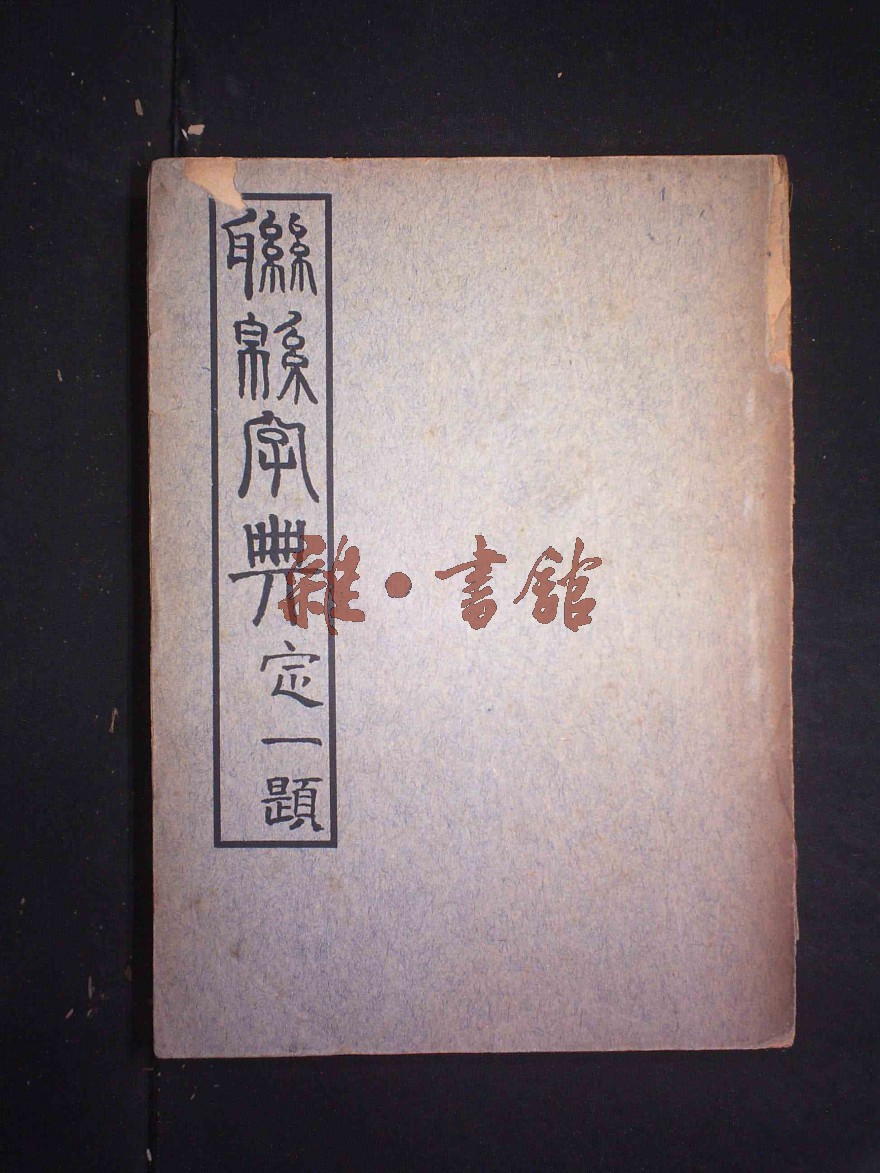 聯緜字典
定一題
雜·書館